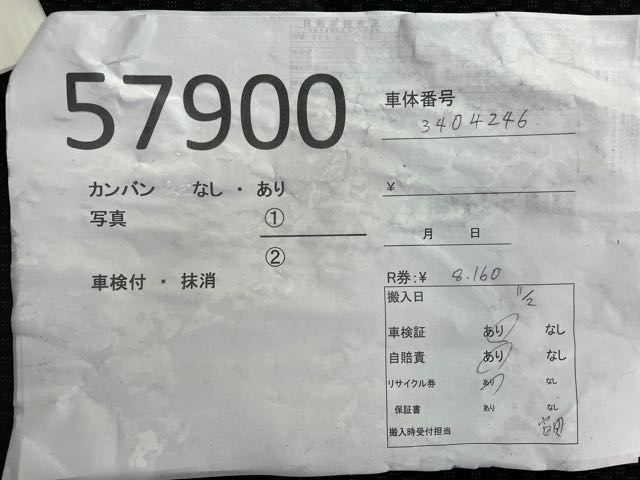 57900
車体番号
3404246
カンバン なし ・ あり
¥
写真 ①
②
月 日
車検付 ・ 抹消
R券:¥ 8.160
搬入日 11/2
車検証 あり なし
自賠責 あり なし
リサイクル券 あり なし
保証書 あり なし
搬入時受付担当